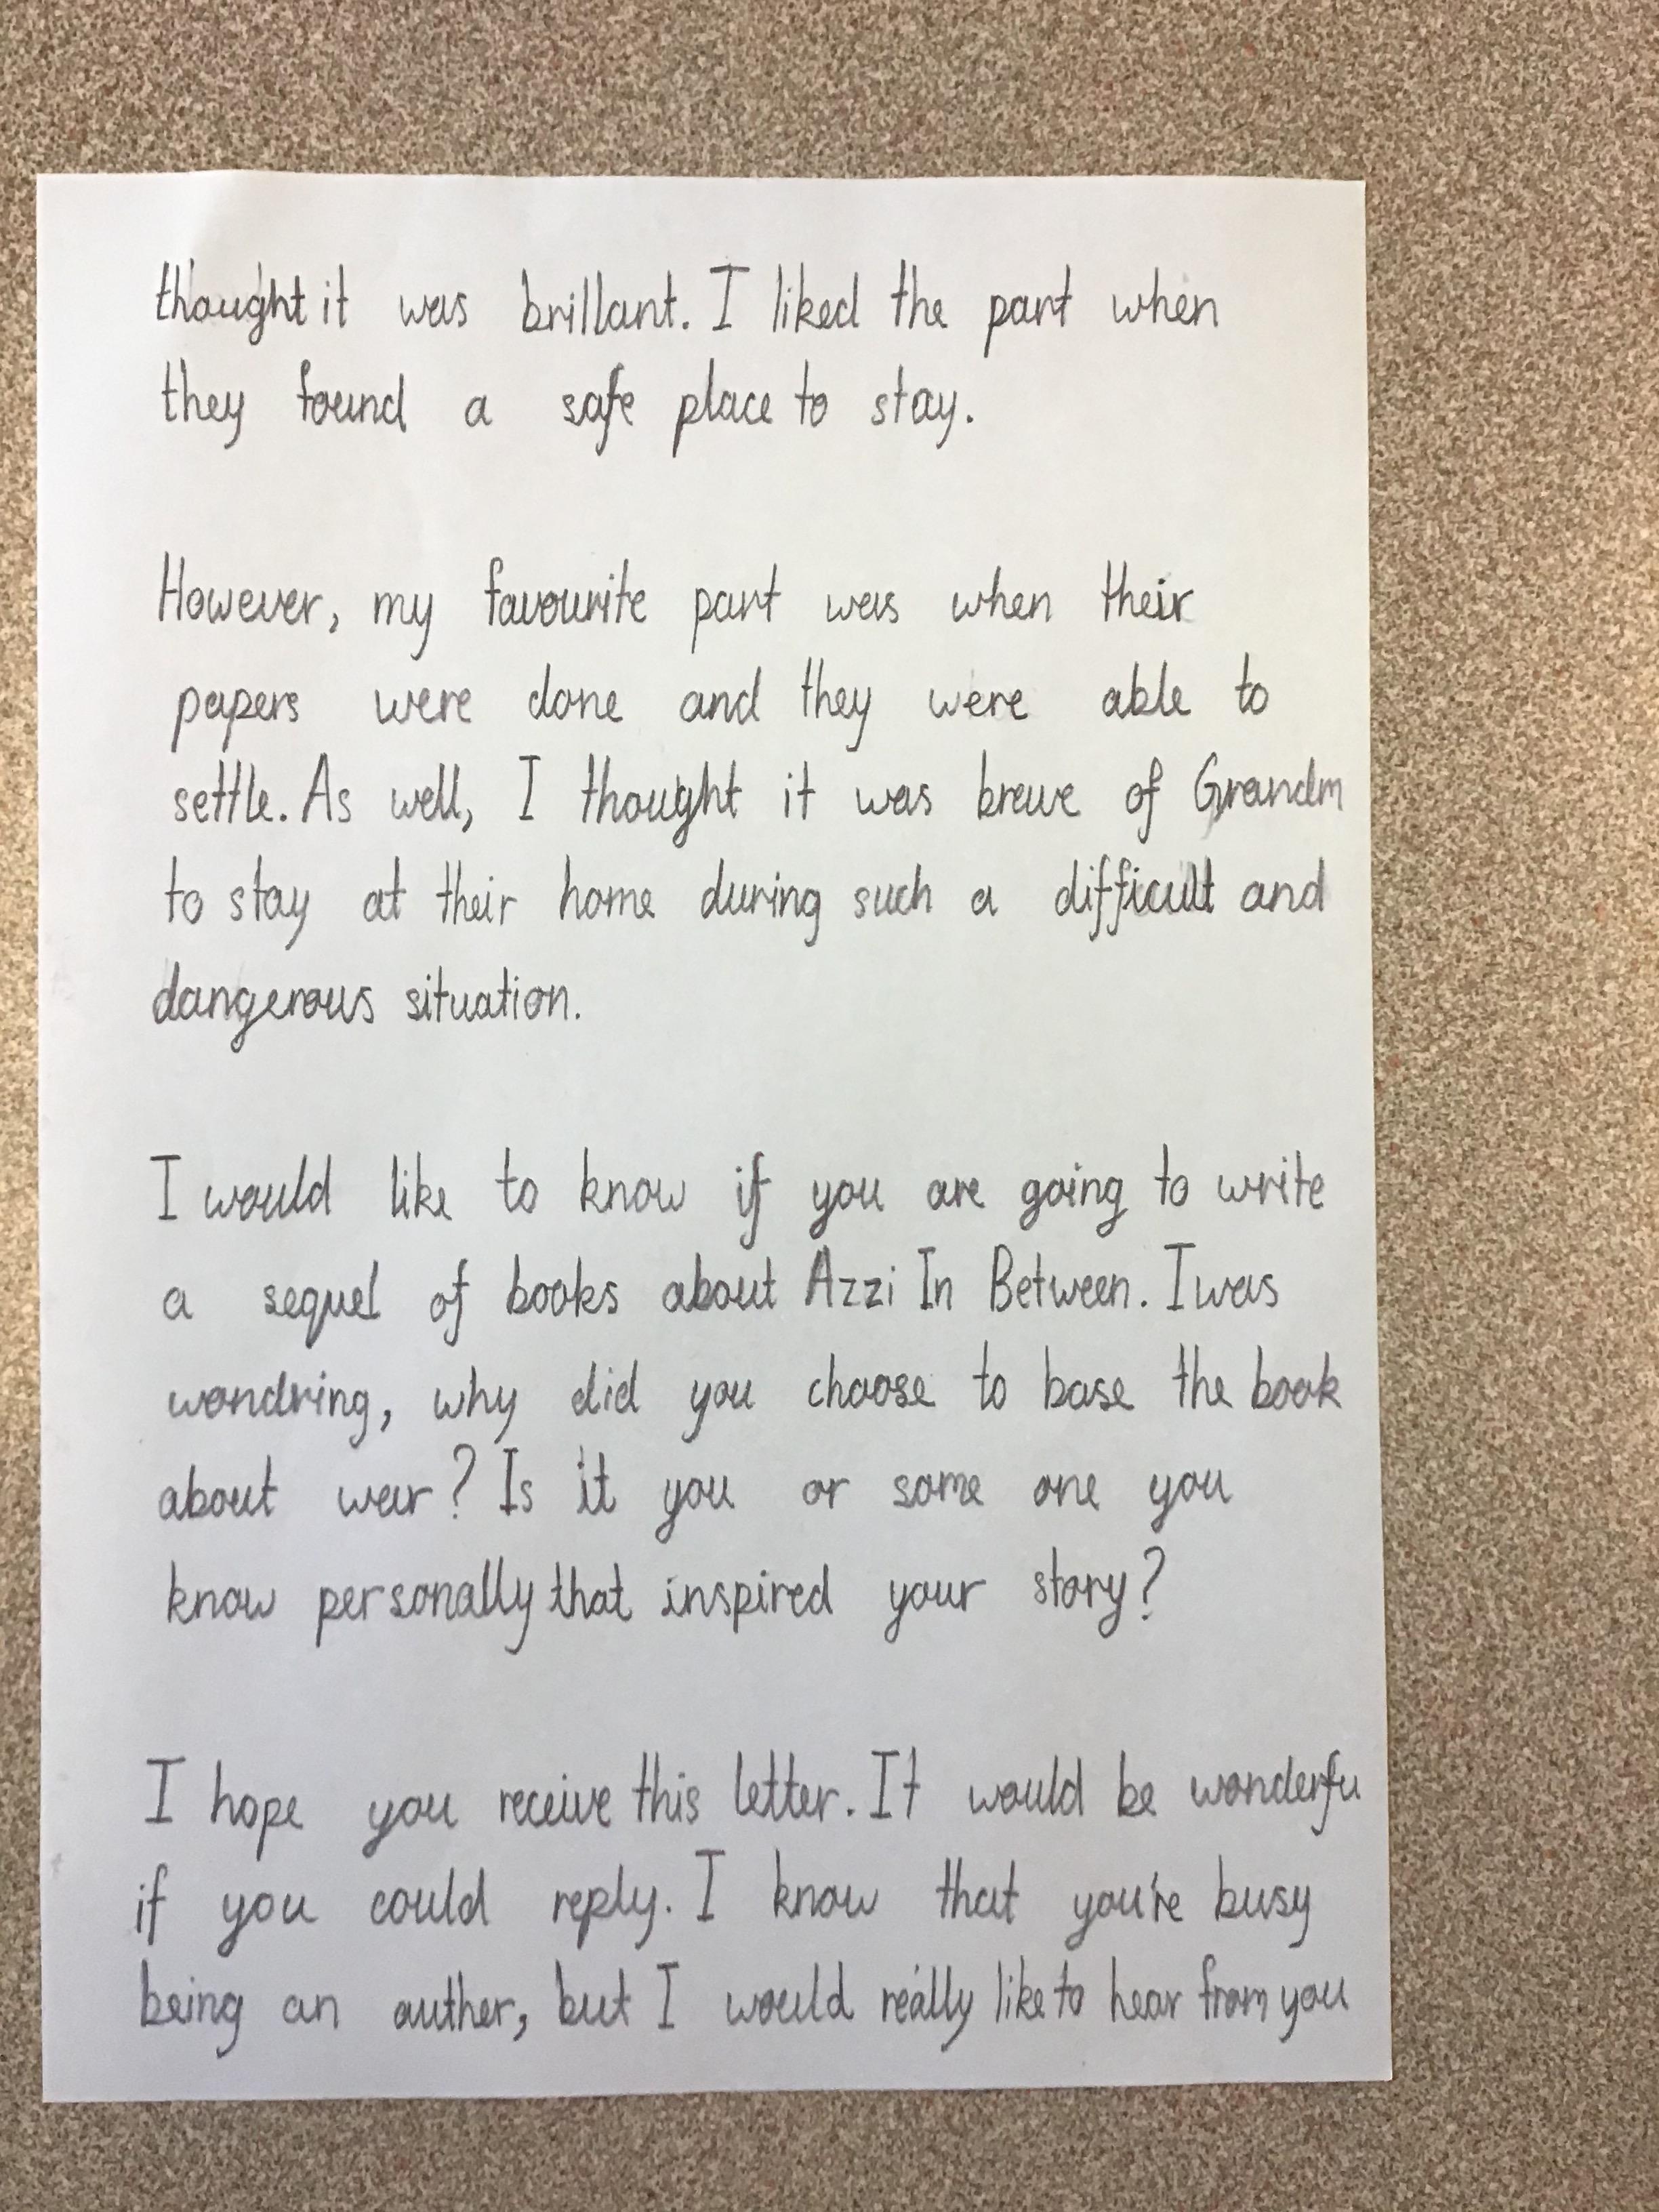 thought it was brillant. I liked the part when
they found a safe place to stay.
However, my favourite part was when their
papers were done and they were able to
settle. As well, I thought it was brave of Grandm
to stay at their home during such a difficult and
dangerous situation.
I would like to know if you are going to write
a sequel of books about Azzi In Between. I was
wondring, why did you choose to base the book
about war? Is it you or some one you
know personally that inspired your story?
I hope you receive this letter. It would be wonderfu
if you could reply. I know that you're busy
being an auther, but I would really like to hear from you